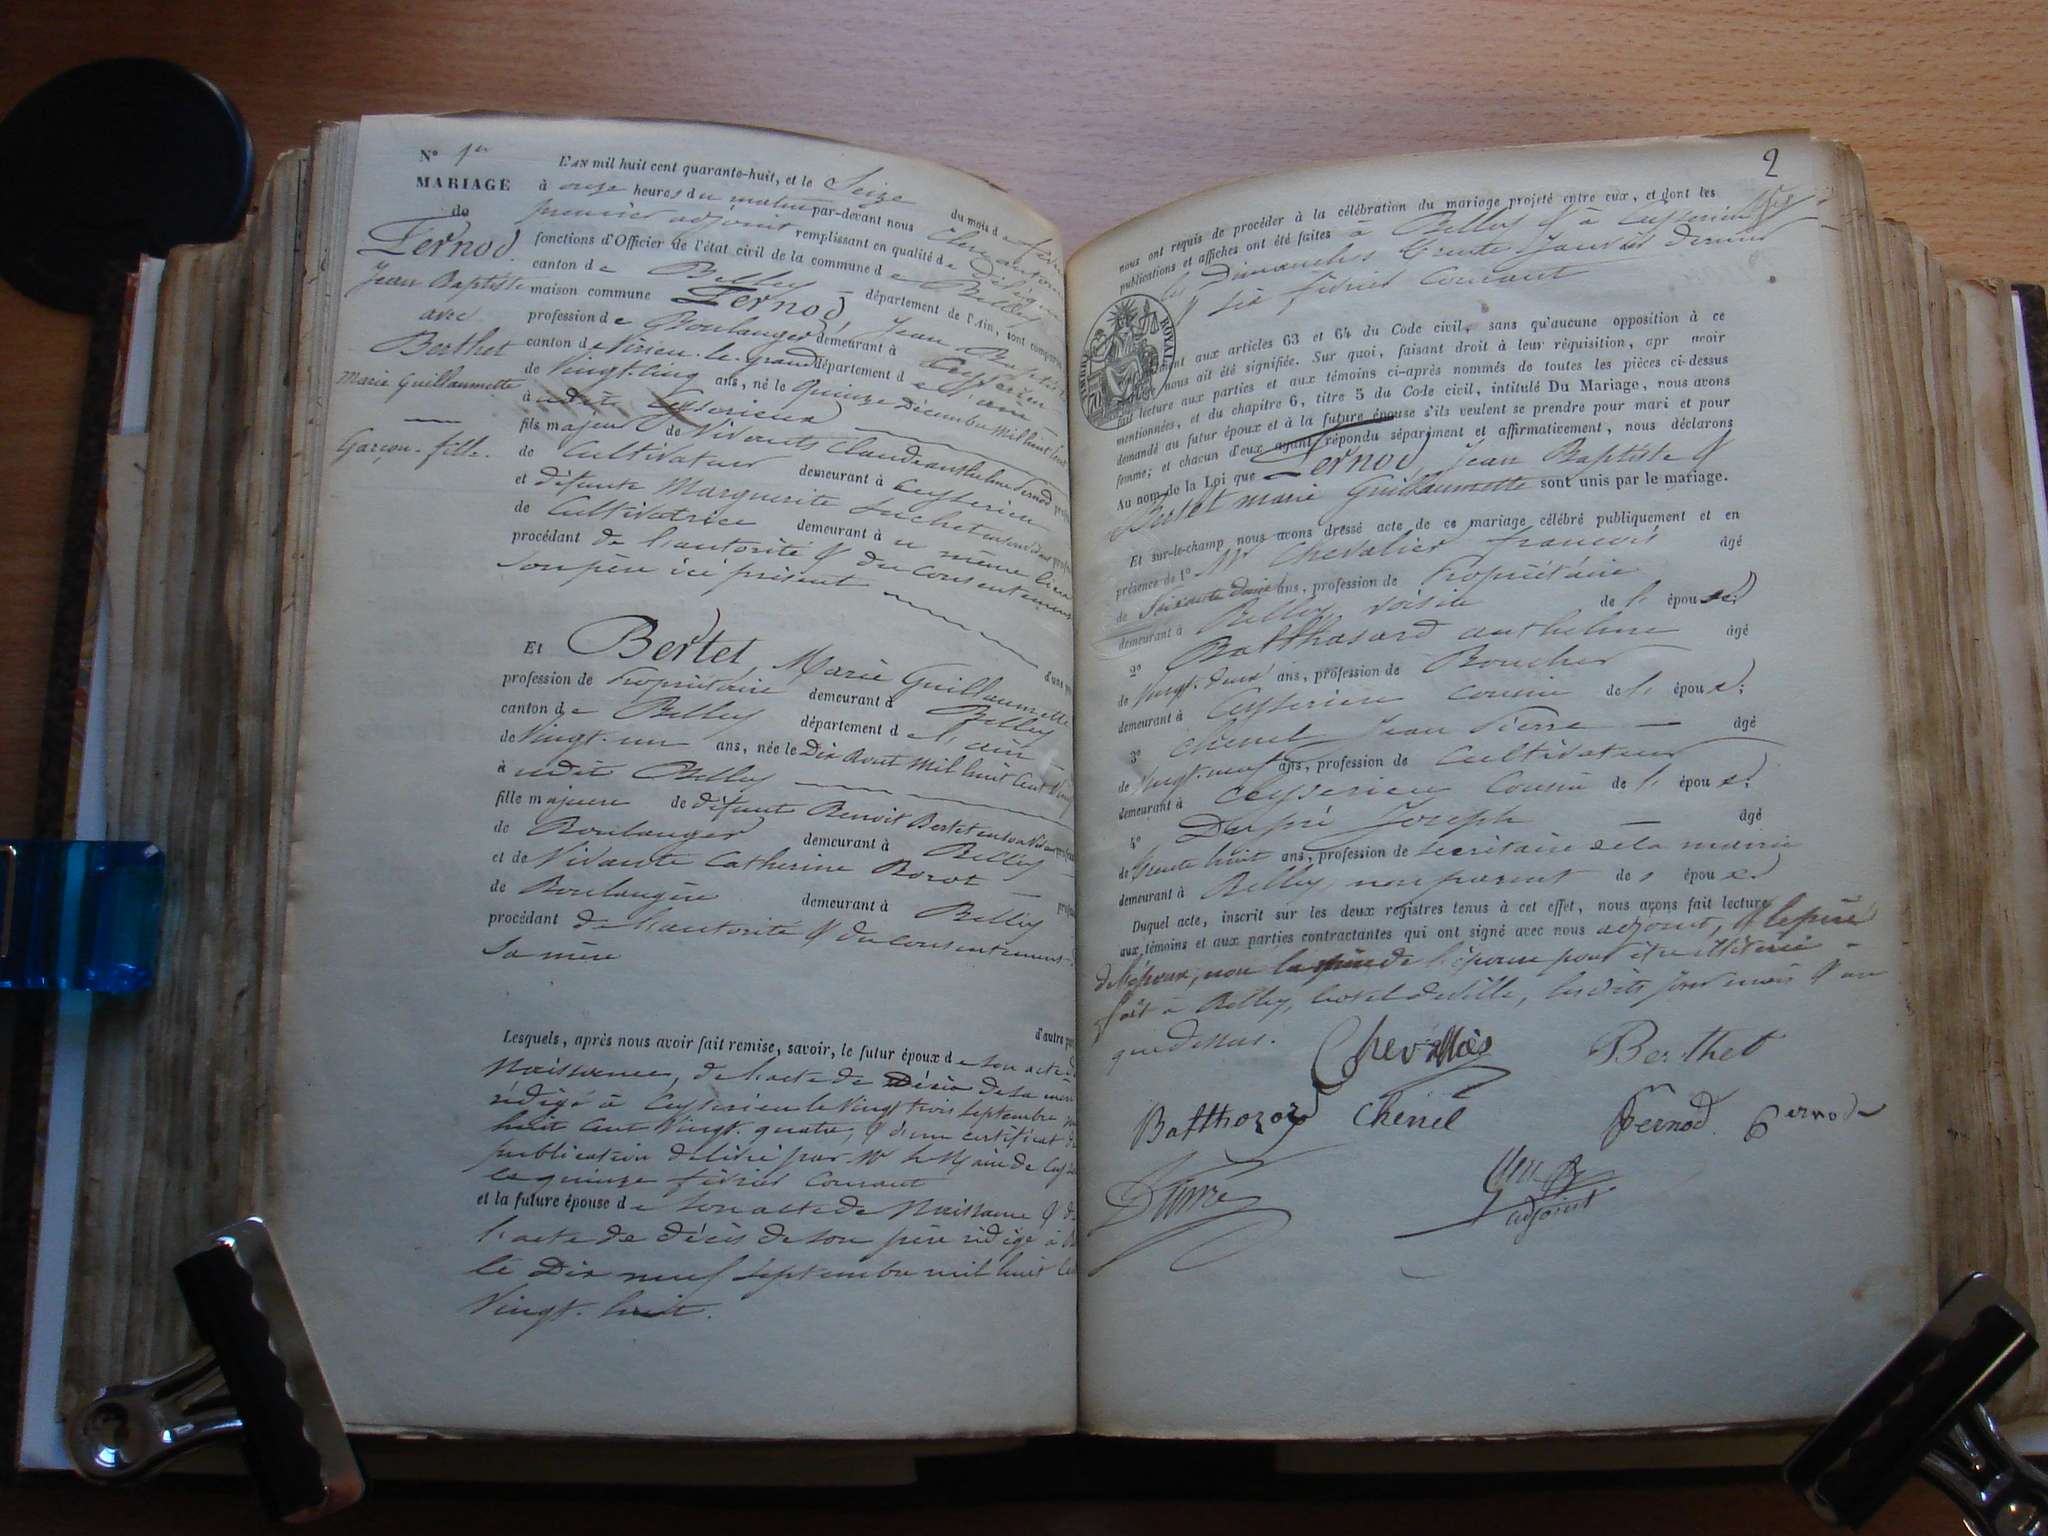 N° 1er
MARIAGE
de
Fernod.
Jean Baptiste
avec
Berthet
Marie Guillaumette
Garçon-fille.
L'AN mil huit cent quarante-huit, et le Seize du mois de
à onze heures du matin par-devant nous
premier adjoint remplissant en qualité de
fonctions d'Officier de l'état civil de la commune de Belley
canton de Belley département de l'Ain, sont
maison commune Fernod, Jean Baptiste
profession de Boulanger demeurant à Ceyzerieu
canton de Virieu-le-grand département de l'ain
de Vingt cinq ans, né le quinze Décembre Mil huit Cent
à udit Ceyzerieu
fils majeur de Vivants Claude anthelme Fernod
de Cultivateur demeurant à Ceyzerieu
et défunte Marguerite Luchet
de Cultivatrice demeurant à u même lieu
procédant de l'autorité & du consentement
Son père ici présent
d'une
Et Bertet, Marie Guillaumette
profession de Propriétaire demeurant à Belley
canton de Belley département de l'ain
de Vingt-un ans, née le Dix Aout Mil huit Cent Vingt
à udit Belley
fille majeure de défunt Benoit Bertet
de Boulanger demeurant à Belley
et de Vivante Catherine Borot
de Boulangère demeurant à Belley
procédant de l'autorité & du Consentement
Sa mère
d'autre
Lesquels, après nous avoir fait remise, savoir, le futur époux de son acte
Naissance, de l'acte de Décès de sa mère
rédigé à Ceyzerieu le Vingt trois Septembre
huit Cent Vingt quatre, & d'un certificat
publication délivré par Mr le Maire de
le quinze février Courant
et la future épouse de Son acte de Naissance &
l'acte de décès de son père rédigé à
le Dix neuf Septembre mil huit
Vingt-huit.
2
nous ont requis de procéder à la célébration du mariage projeté entre eux, et dont les
publications et affiches ont été faites à Belley & à Ceyzerieu
les Dimanches trente Janvier dernier
& six février Courant
TIMBRE ROYAL
70
aux articles 63 et 64 du Code civil, sans qu'aucune opposition à ce
nous ait été signifiée. Sur quoi, faisant droit à leur réquisition, apr avoir
lecture aux parties et aux témoins ci-après nommés de toutes les pièces ci-dessus
mentionnées, et du chapitre 6, titre 5 du Code civil, intitulé Du Mariage, nous avons
demandé au futur époux et à la future épouse s'ils veulent se prendre pour mari et pour
femme; et chacun d'eux ayant répondu séparément et affirmativement, nous déclarons
Au nom de la Loi que Fernod, Jean Baptiste &
Bertet marie Guillaumette sont unis par le mariage.
Et sur-le-champ nous avons dressé acte de ce mariage célébré publiquement et en
présence de 1° Mr Chevalier francois âgé
de ans, profession de Propriétaire
demeurant à Belley voisin de l' épouse
2° Balthasard anthelme âgé
de Vingt-deux ans, profession de Boucher
demeurant à Ceyzerieu cousin de l' épou
3° Chenel Jean Pierre âgé
de Vingt-neuf ans, profession de Cultivateur
demeurant à Ceyzerieu Cousin de l' épou
4° Dupré Joseph âgé
de trente huit ans, profession de Secrétaire de la mairie
demeurant à Belley, non parent de s épou
Duquel acte, inscrit sur les deux registres tenus à cet effet, nous avons fait lecture
aux témoins et aux parties contractantes qui ont signé avec nous adjoint, & le père
de l'époux, non la mère de l'épouse pour être illitérée
fait à Belley, hotel de ville, les dits jour mois & an
que dessus.
Chevallier Berthet
Balthazard Chenel Fernod. Fernod
Dupré
adjoint